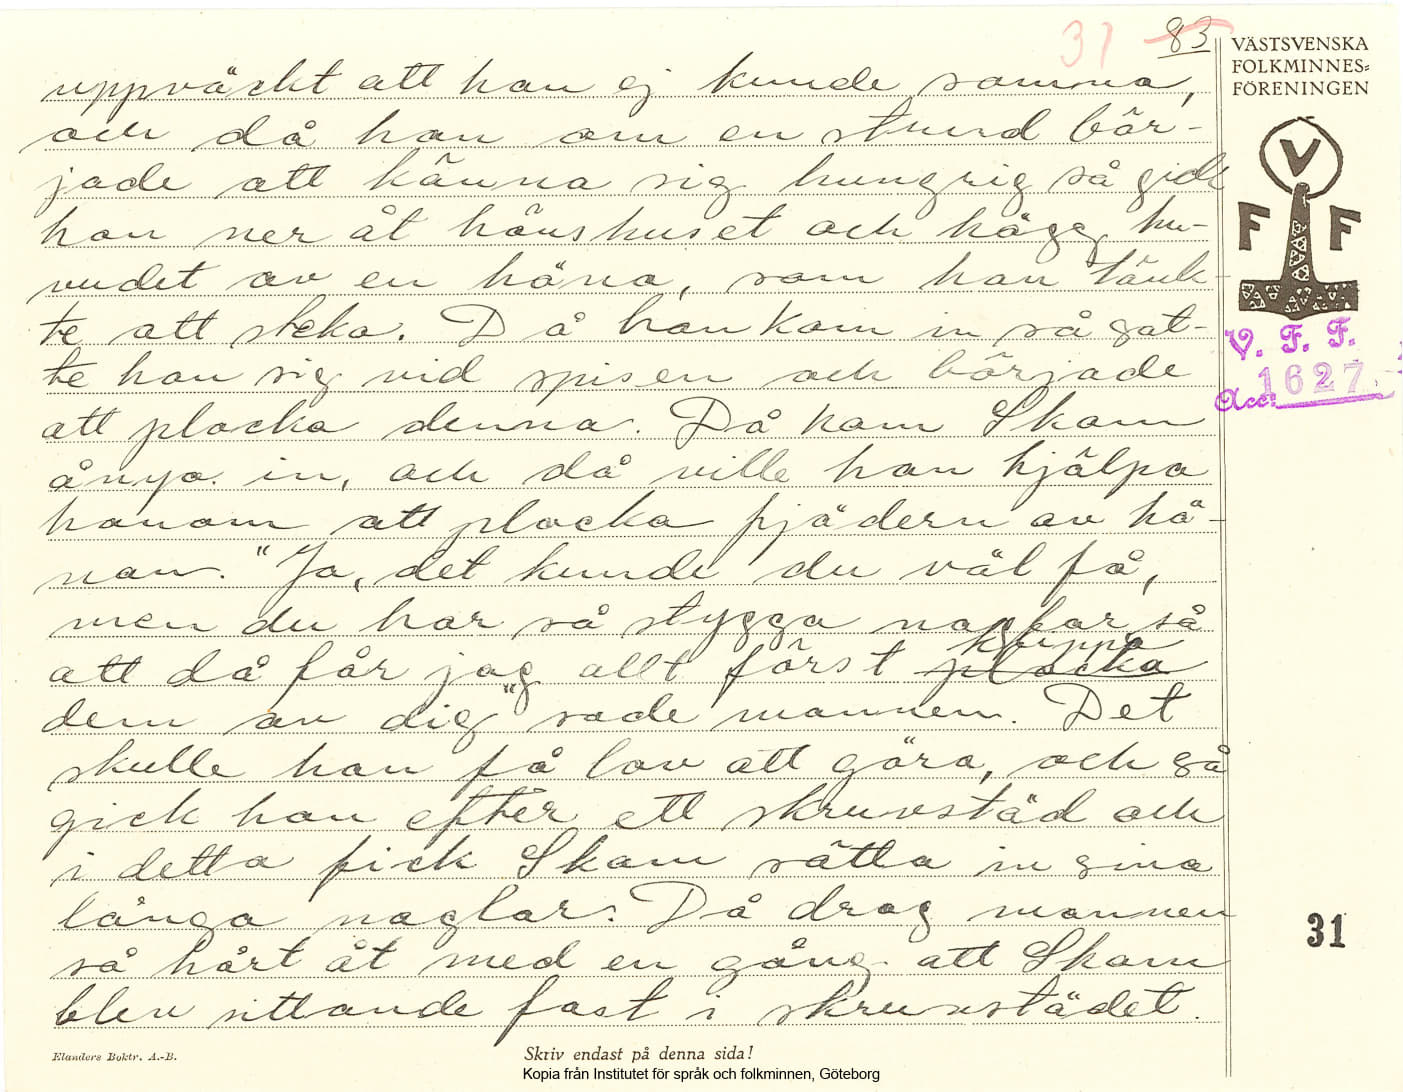 31 83
VÄSTSVENSKA
FOLKMINNES=
FÖRENINGEN
V
F F
V. F. F.
Acc: 1627
uppväckt att han ej kunde somna,
och då han om en stund bör-
jade att känna sig hungrig så gick
han ner åt hönshuset och högg hu-
vudet av en höna, som han tänk-
te att steka. Då han kom in så sat-
te han sig vid spisen och började
att plocka denna. Då kom Skam
ånyo in, och då ville han hjälpa
honom att plocka fjädern av hö-
nan. "Ja, det kunde du väl få,
men du har så stygga naglar så
att då får jag allt först plocka knippa
dem av dig" sade mannen. Det
skulle han få lov att göra, och så
gick han efter ett skruvstäd och
i detta fick Skam sätta in sina
långa naglar. Då drog mannen
så hårt åt med en gång att Skam
blev sittande fast i skruvstädet.
31
Elanders Boktr. A.-B.
Skriv endast på denna sida!
Kopia från Institutet för språk och folkminnen, Göteborg